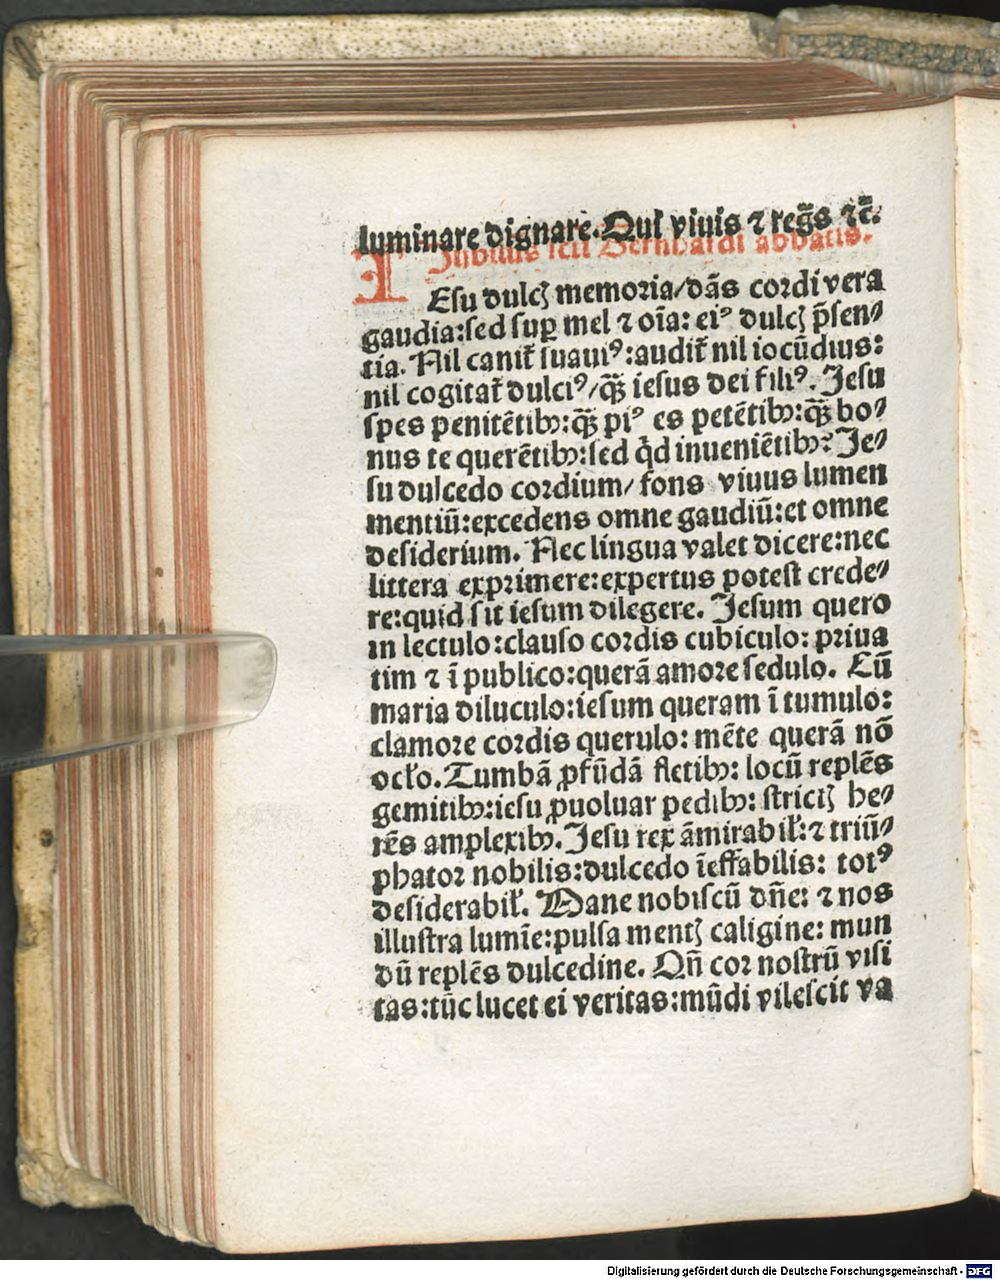 luminare dignare. Qui viuis ⁊ regs̄ ⁊c̄.
Jubilus scti Bernhardi abbatis.
IEsu dulcꝫ memoria/dās cordi vera
gaudia:sed suꝑ mel ⁊ oīa: eiꝰ dulcꝫ p̄sen⸗
tia. Nil canit̄ suauiꝰ:audit̄ nil iocūdius:
nil cogitat̄ dulciꝰ/qꝫ̄ iesus dei filiꝰ. Jesu
spes penitētibꝫ:qꝫ̄ piꝰ es petētibꝫ:qꝫ̄ bo⸗
nus te querētibꝫ:sed qͥd inueniētibꝫ? Je⸗
su dulcedo cordium/ fons viuus lumen
mentiū:excedens omne gaudiū:et omne
desiderium. Nec lingua valet dicere:nec
littera exprimere:expertus potest crede⸗
re:quid sit iesum dilegere. Jesum quero
in lectulo:clauso cordis cubiculo: priua
tim ⁊ ī publico:querā amore sedulo. Cū
maria diluculo:iesum queram ī tumulo:
clamore cordis querulo: mēte querā nō
ocło. Tumbā ꝓfūdā fletibꝫ: locū replēs
gemitibꝫ:iesu ꝓuoluar pedibꝫ: strictꝫ he⸗
rēs amplexibꝫ. Jesu rex āmirabił:⁊ triū⸗
phator nobilis:dulcedo īeffabilis: totꝰ
desiderabił. Mane nobiscū dn̄e: ⁊ nos
illustra lumīe:pulsa mentꝫ caligine: mun
dū replēs dulcedine. Qn̄ cor nostrū visi
tas:tūc lucet ei veritas:mūdi vilescit va
Digitalisierung gefördert durch die Deutsche Forschungsgemeinschaft - DFG